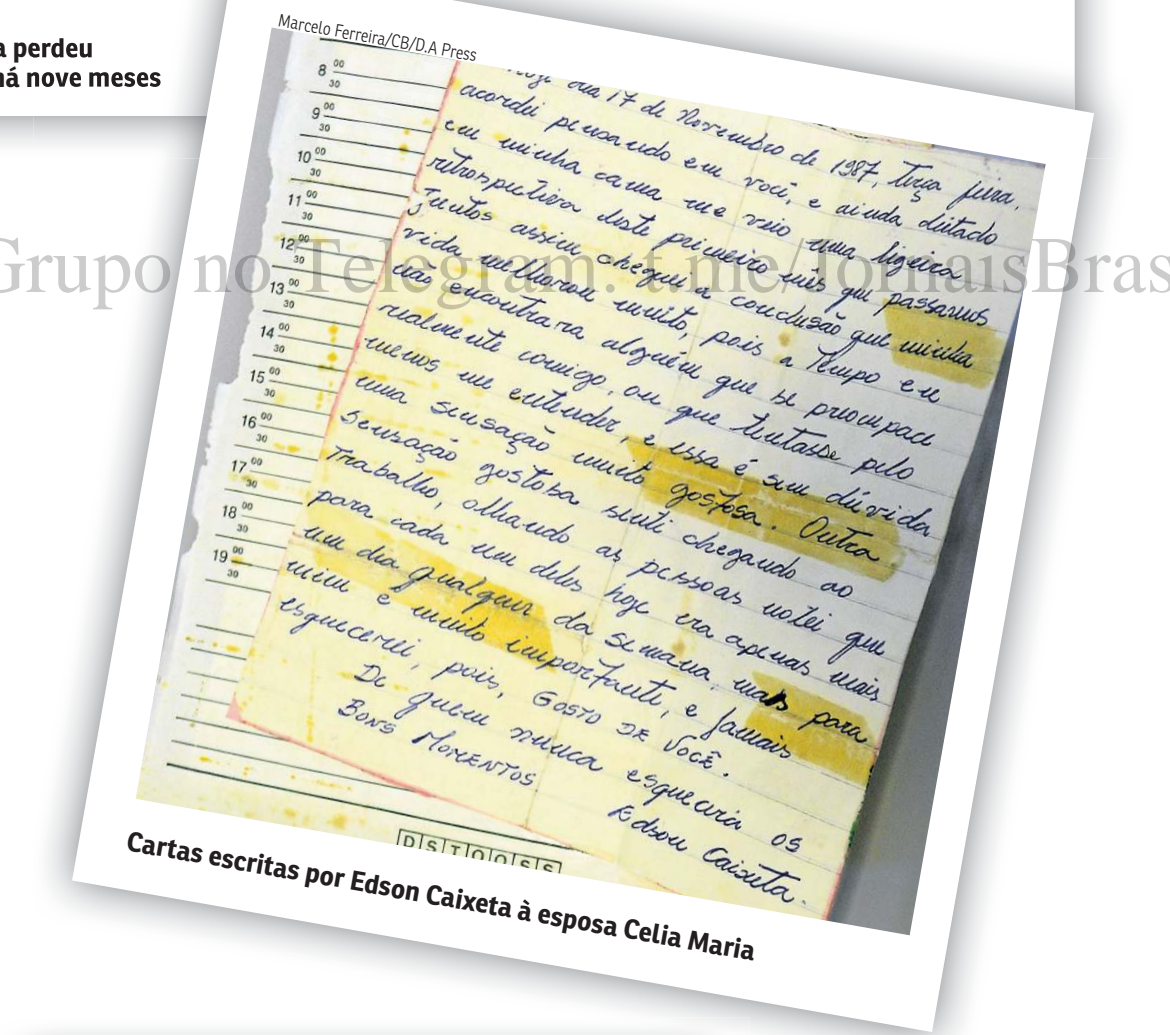 a perdeu
há nove meses
Marcelo Ferreira/CB/D.A Press
8 00
30
9 00
30
10 00
30
11 00
30
12 00
30
13 00
30
14 00
30
15 00
30
16 00
30
17 00
30
18 00
30
19 00
30
dia 17 de Novembro de 1987, terça feira,
acordei pensando em você, e ainda deitado
em minha cama me veio uma ligeira
retrospectiva deste primeiro mês que passamos
juntos assim cheguei a conclusão que minha
vida melhorou muito, pois a tempo eu
não encontrara alguém que se preocupace
realmente comigo, ou que tentasse pelo
menos me entender, e essa é sem dúvida
uma sensação muito gostosa. Outra
sensação gostosa senti chegando ao
trabalho, olhando as pessoas notei que
para cada um deles hoje era apenas mais
um dia qualquer da semana, mais para
mim é muito importante, e jamais
esquecerei, pois, GOSTO DE VOCÊ.
De quem nunca esquecerá os
BONS MOMENTOS
Edson Caixeta.
D S T Q Q S S
Grupo no Telegram: t.me/JornaisBras
Cartas escritas por Edson Caixeta à esposa Celia Maria